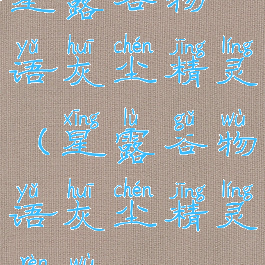 星露谷物
yǔ huī chén jīng líng
语灰尘精灵
xīng lù gǔ wù
（星露谷物
yǔ huī chén jīng líng
语灰尘精灵